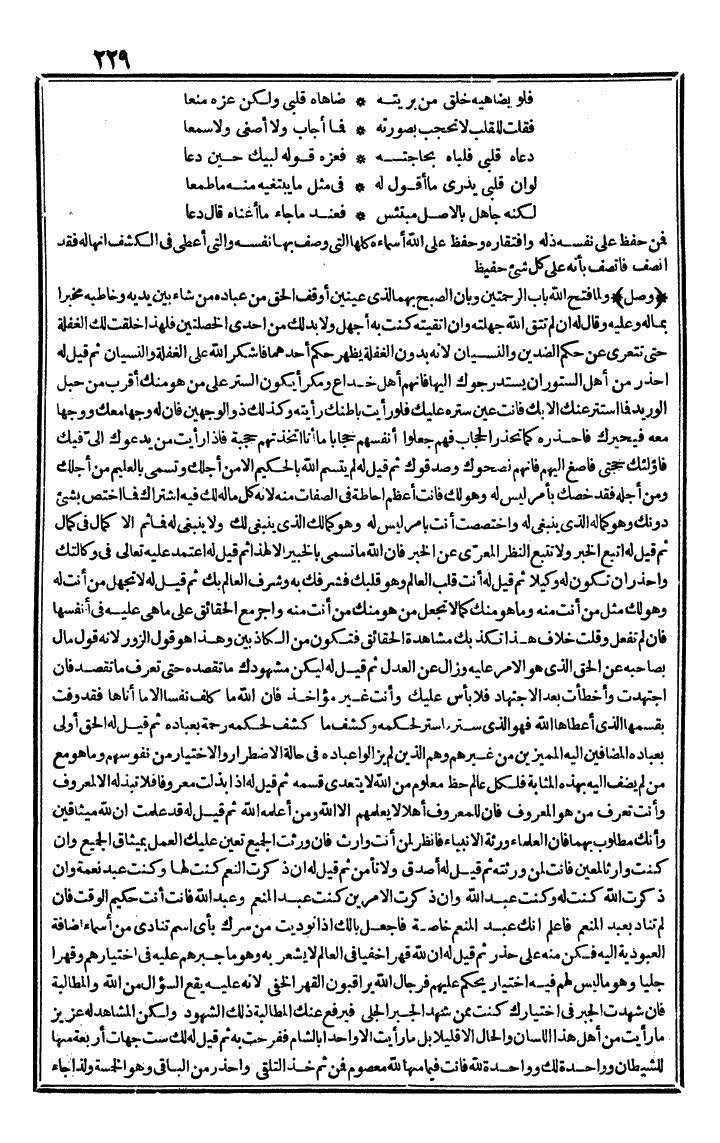 ٢٢٩
فلو يضاهيه خلق من بريته * ضاهاه قلبي ولكن عزه منعا
فقلت للقلب لا تحجب بصورته * فما أجاب ولا أصغى ولا سمعا
دعاه قلبي فلباه بحاجته * فعزه قوله لبيك حين دعا
لو ان قلبي يدري ما أقول له * في مثل ما يبتغيه منه ما طمعا
لكنه جاهل بالاصل مبتئس * فعند ما جاء ما أغناه قال دعا
فمن حفظ على نفسه ذله وافتقاره وحفظ على الله أسماءه كلها التي وصف بها نفسه والتي أعطى في الكشف انها له فقد
انصف فاتصف بأنه على كل شئ حفيظ
﴿وصل﴾ ولما فتح الله باب الرحمتين وبان الصبح بهما لذي عينين أوقف الحق من عباده من شاء بين يديه وخاطبه مخبرا
بماله وعليه وقال له ان لم تتق الله جهلته وان اتقيته كنت به أجهل ولابد لك من احدى الخصلتين فلهذا خلقت لك الغفلة
حتى تتعرى عن حكم الضدين والنسيان لانه بدون الغفلة يظهر حكم أحدهما فاشكر الله على الغفلة والنسيان ثم قيل له
احذر من أهل الستور ان يستدرجوك اليها فانهم أهل خداع ومكر أيكون الستر على من هو منك أقرب من حبل
الوريد فما استتر عنك الا بك فانت عين ستره عليك فلو رأيت باطنك رأيته وكذلك ذو الوجهين فان له وجها معك ووجها
معه فيحيرك فاحذره كما تحذر الحجاب فهم جعلوا أنفسهم حجابا ما أنا اتخذتهم حجبة فاذا رأيت من يدعوك الى فيك
فاولئك حجبتي فاصغ اليهم فانهم نصحوك وصدقوك ثم قيل له لم يتسم الله بالحكيم الا من أجلك وتسمى بالعليم من أجلك
ومن أجله فقد خصك بأمر ليس له وهو لك فانت أعظم احاطة في الصفات منه لانه كل ماله لك فيه اشتراك فما اختص بشئ
دونك وهو كماله الذي ينبغي له واختصصت أنت بامر ليس له وهو كمالك الذي ينبغي لك ولا ينبغي له فما ثم الا كمال في كمال
ثم قيل له اتبع الخبر ولا تتبع النظر المعرى عن الخبر فان الله ما تسمى بالخبير الا لهذا ثم قيل له اعتمد عليه تعالى في وكالتك
واحذر ان تكون له وكيلا ثم قيل له أنت قلب العالم وهو قلبك فشرفك به وشرف العالم بك ثم قيل له لا تجهل من أنت له
وهو لك مثل من أنت منه وما هو منك كما لا تجعل من هو منك من أنت منه واجر مع الحقائق على ما هي عليه في أنفسها
فان لم تفعل وقلت خلاف هذا تكذبك مشاهدة الحقائق فتكون من الكاذبين وهذا هو قول الزور لانه قول مال
بصاحبه عن الحق الذي هو الامر عليه وزال عن العدل ثم قيل له ليكن مشهودك ما تقصده حتى تعرف ما تقصد فان
اجتهدت وأخطأت بعد الاجتهاد فلا بأس عليك وأنت غير مؤاخذ فان الله ما كلف نفسا الا ما أتاها فقد وفت
بقسمها الذي أعطاها الله فهو الذي ستر ما ستر لحكمه وكشف ما كشف لحكمه رحمة بعباده ثم قيل له الحق أولى
بعباده المضافين اليه المميزين من غيرهم وهم الذين لم يزالوا عباده في حالة الاضطرار والاختيار من نفوسهم وما هو مع
من لم يضف اليه بهذه المثابة فلكل عالم حظ معلوم من الله لا يتعدى قسمه ثم قيل له اذا بذلت معروفا فلا تبذله الا لمعروف
وأنت تعرف من هو المعروف فان للمعروف أهلا لا يعلمهم الا الله ومن أعلمه الله ثم قيل له قد علمت ان لله ميثاقين
وأنك مطلوب بهما فان العلماء ورثة الانبياء فانظر لمن أنت وارث فان ورثت الجميع تعين عليك العمل بميثاق الجميع وان
كنت وارثا لمعين فانت لمن ورثته ثم قيل له أصدق ولا تأمن ثم قيل له ان ذكرت النعم كنت لها وكنت عبد نعمة وان
ذكرت الله كنت له وكنت عبد الله وان ذكرت الامرين كنت عبد المنعم وعبد الله فانت أنت حكيم الوقت فان
لم تناد بعبد المنعم فاعلم انك عبد المنعم خاصة فاجعل بالك اذا نوديت من سرك بأى اسم تنادى من أسماء اضافة
العبودية اليه فكن منه على حذر ثم قيل له ان لله قهرا خفيا في العالم لا يشعر به وهو ما جبرهم عليه في اختيارهم وقهرا
جليا وهو ما ليس لهم فيه اختيار يحكم عليهم فرجال الله يراقبون القهر الخفي لانه عليه يقع السؤال من الله والمطالبة
فان شهدت الجبر في اختيارك كنت ممن شهد الجبر الجلي فيرفع عنك المطالبة ذلك الشهود ولكن المشاهد له عزيز
ما رأيت من أهل هذا اللسان والحال الا قليلا بل ما رأيت الا واحدا بالشام ففرحت به ثم قيل له لك ست جهات أربعة منها
للشيطان وواحدة لك وواحدة لله فانت فيما منها لله معصوم فمن ثم خذ التلقي واحذر من الباقي وهو الخمسة ولذا جاء